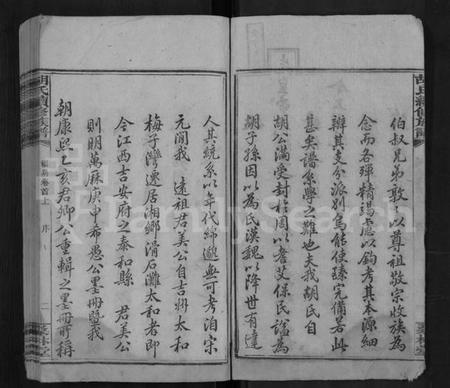 胡氏續修族譜
伯叔兄弟敢以尊祖敬宗收族為
念而各殫精竭慮以鉤考其本源細
辨其支分派別烏能使臻完備若此
甚矣譜系學之難也夫我胡氏自
胡公滿受封於陳因以耆艾保民諡為
胡子孫因以為氏漢魏以降世有達
人其統系以年代綿邈無可考洎宋
元間我 遠祖君美公自吉州太和
梅子灣遷居湘鄉滑石灘太和者即
今江西吉安府之泰和縣 君美公
則明萬厤庚申希愚公墨冊暨我
朝康熙乙亥君卿公重輯之墨冊所稱
胡氏續修族譜
卷首上 序
二